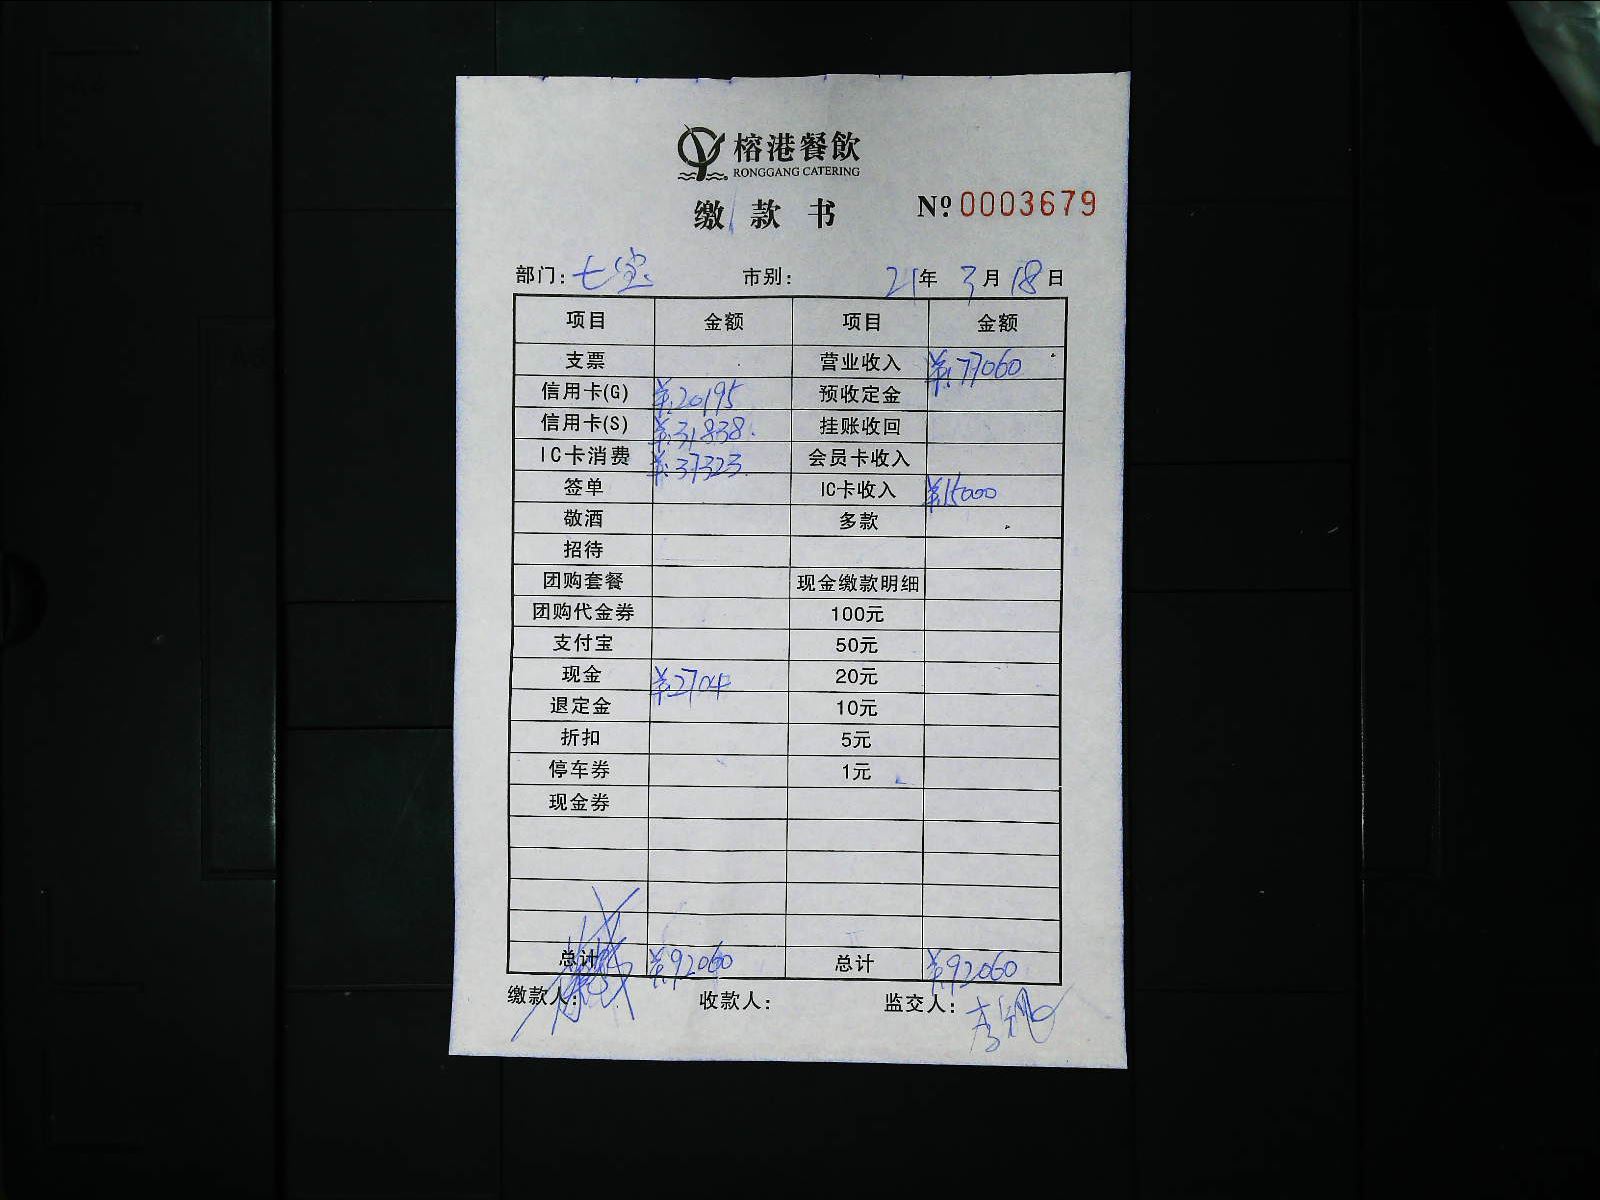 榕港餐飲
RONGGANG CATERING
缴款书
№ 0003679
部门: 七宝 市别: 21年 3月 18日
项目 金额 项目 金额
支票 营业收入 ¥:77060
信用卡(G) ¥:20195 预收定金
信用卡(S) ¥:31838. 挂账收回
IC卡消费 ¥:37323. 会员卡收入
签单 IC卡收入 ¥15000
敬酒 多款
招待
团购套餐 现金缴款明细
团购代金券 100元
支付宝 50元
现金 ¥:2704 20元
退定金 10元
折扣 5元
停车券 1元
现金券
总计 ¥:92060 总计 ¥:92060
缴款人: 收款人: 监交人: